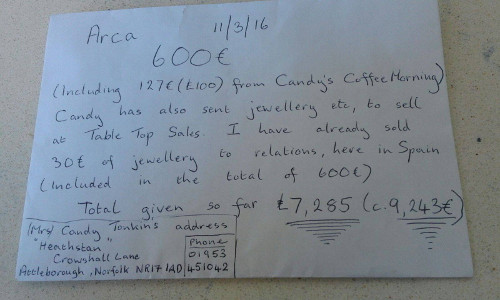 Arca 11/3/16
600€
(Including 127€ (£100) from Candy's Coffee Morning)
Candy has also sent jewellery etc, to sell
at Table Top Sales. I have already sold
30€ of jewellery to relations, here in Spain
(Included in the total of 600€)
Total given so far £7,285 (c.9,243€)
(Mrs) Candy Tonkins address
"Heathstan"
Crowshall Lane
Attleborough, Norfolk NR17 1AD
Phone
01953
451042